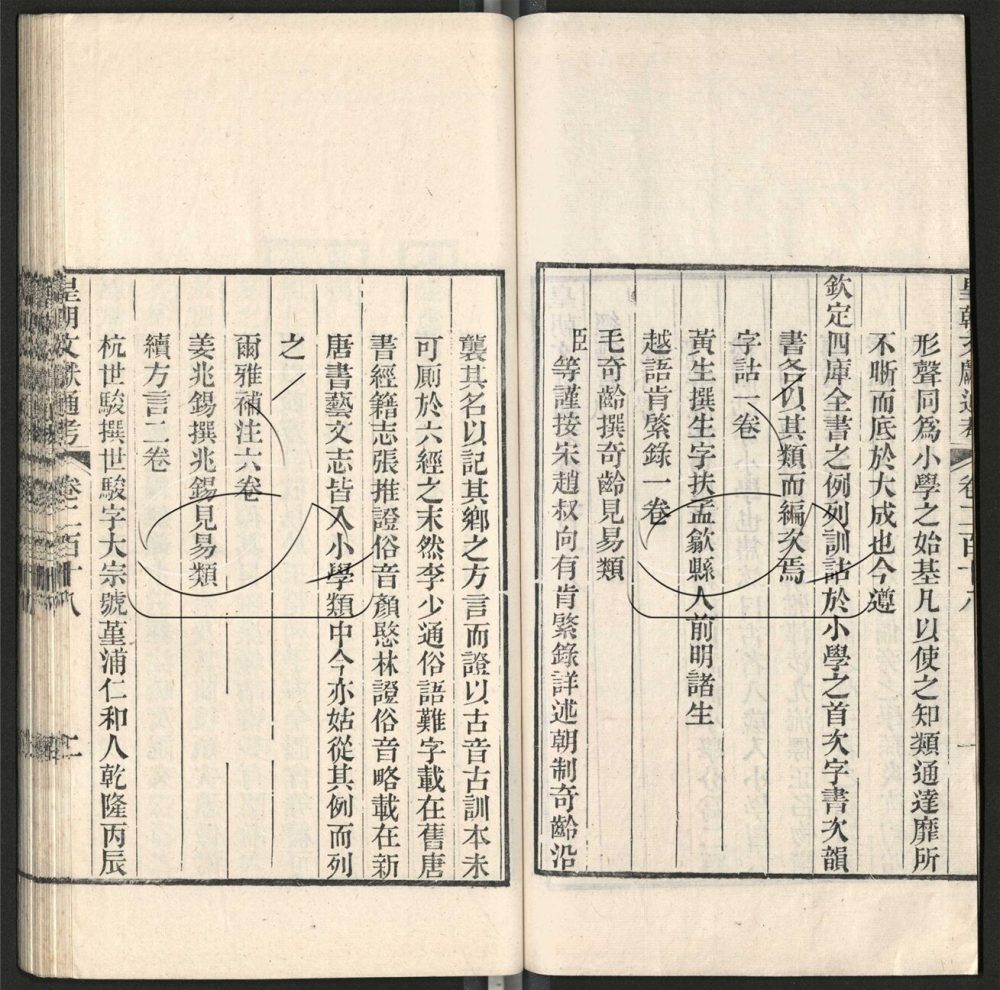 皇朝文獻通考 卷二百十八 一
形聲同爲小學之始基凡以使之知類通達靡所
不晣而底於大成也今遵
欽定四庫全書之例列訓詁於小學之首次字書次韻
書各以其類而編次焉
字詁一卷
黃生撰生字扶孟歙縣人前明諸生
越語肯綮錄一卷
毛奇齡撰奇齡見易類
臣等謹按宋趙叔向有肯綮錄詳述朝制奇齡沿
襲其名以記其鄉之方言而證以古音古訓本未
可厠於六經之末然李少通俗語難字載在舊唐
書經籍志張推證俗音顏愍林證俗音略載在新
唐書藝文志皆入小學類中今亦姑從其例而列
之
爾雅補注六卷
姜兆錫撰兆錫見易類
續方言二卷
杭世駿撰世駿字大宗號堇浦仁和人乾隆丙辰
皇朝文獻通考 卷二百十八